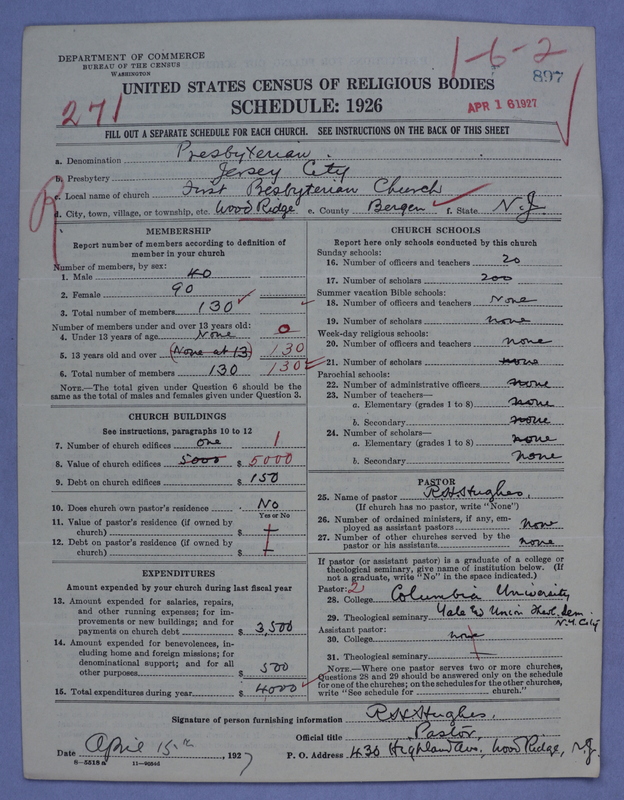 DEPARTMENT OF COMMERCE
BUREAU OF THE CENSUS
WASHINGTON
1-6-2
897
UNITED STATES CENSUS OF RELIGIOUS BODIES
271
SCHEDULE: 1926
APR 16 1927
FILL OUT A SEPARATE SCHEDULE FOR EACH CHURCH. SEE INSTRUCTIONS ON THE BACK OF THIS SHEET
a. Denomination Presbyterian.
b. Presbytery Jersey City
c. Local name of church First Presbyterian Church
R
d. City, town, village, or township, etc. Wood Ridge e. County Bergen f. State N.J.
MEMBERSHIP
Report number of members according to definition of
member in your church
Number of members, by sex:
1. Male 40
2. Female 90
3. Total number of members 130
Number of members under and over 13 years old:
4. Under 13 years of age None 0
5. 13 years old and over (None at 13) 130
6. Total number of members 130 130
NOTE.—The total given under Question 6 should be
same as the total of males and females given under Question 3.
CHURCH BUILDINGS
See instructions, paragraphs 10 to 12
7. Number of church edifices one 1
8. Value of church edifices 5000 $ 5000
9. Debt on church edifices $ 150
10. Does church own pastor's residence No
Yes or No
11. Value of pastor's residence (if owned by
church) $
12. Debt on pastor's residence (if owned by
church) $
EXPENDITURES
Amount expended by your church during last fiscal year
13. Amount expended for salaries, repairs,
and other running expenses; for im-
provements or new buildings; and for
payments on church debt $ 3,500
14. Amount expended for benevolences, in-
cluding home and foreign missions; for
denominational support; and for all
other purposes $ 500
15. Total expenditures during year $ 4000
CHURCH SCHOOLS
Report here only schools conducted by this church
Sunday schools:
16. Number of officers and teachers 20
17. Number of scholars 200
Summer vacation Bible schools:
18. Number of officers and teachers None
19. Number of scholars none
Week-day religious schools:
20. Number of officers and teachers none
21. Number of scholars none
Parochial schools:
22. Number of administrative officers none
23. Number of teachers—
a. Elementary (grades 1 to 8) none
b. Secondary none
24. Number of scholars—
a. Elementary (grades 1 to 8) none
b. Secondary none
PASTOR
25. Name of pastor R.H. Hughes.
(If church has no pastor, write "None")
26. Number of ordained ministers, if any, em-
ployed as assistant pastors none
27. Number of other churches served by the
pastor or his assistants none
If pastor (or assistant pastor) is a graduate of a college or
theological seminary, give name of institution below. (If
not a graduate, write "No" in the space indicated.)
Pastor: 2
28. College Columbia University
29. Theological seminary Yale & Union Theol. Sem. N.Y. City
Assistant pastor:
30. College none
31. Theological seminary
NOTE.—Where one pastor serves two or more churches,
Questions 28 and 29 should be answered only on the schedule
for one of the churches; on the schedules for the other churches,
write "See schedule for church."
Signature of person furnishing information R.H. Hughes.
Official title Pastor.
Date April 15th, 1927 P. O. Address 430 Highland Ave., Wood Ridge, N.J.
8-5518 a 11-90355